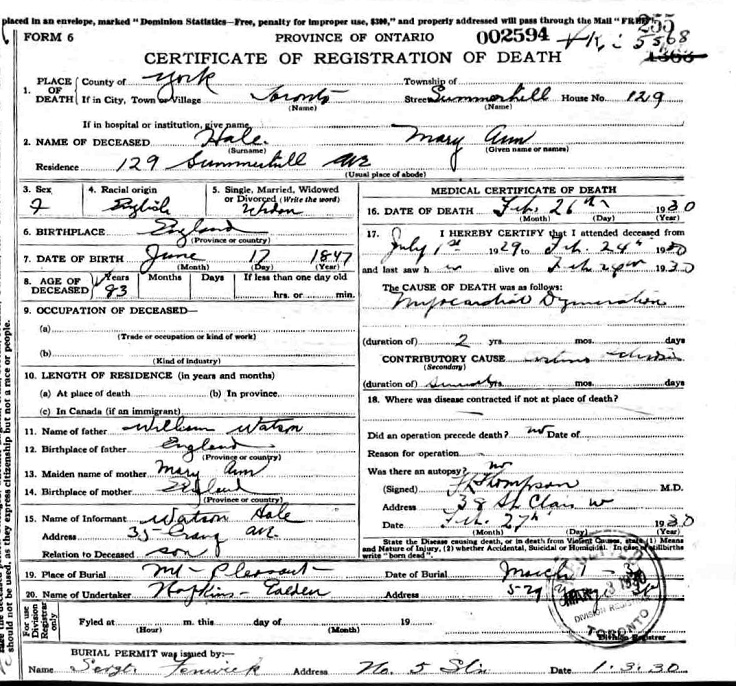 placed in an envelope, marked "Dominion Statistics—Free, penalty for improper use, $300," and properly addressed will pass through the Mail "FREE".
FORM 6 PROVINCE OF ONTARIO 002594 255
5568
CERTIFICATE OF REGISTRATION OF DEATH 1363
1. PLACE OF DEATH { County of York Township of
If in City, Town or Village Toronto (Name) Street Summerhill (Name) House No. 129
If in hospital or institution, give name
2. NAME OF DECEASED Hale. (Surname) Mary Ann (Given name or names)
Residence 129 Summerhill Ave (Usual place of abode)
3. Sex F
4. Racial origin English
5. Single, Married, Widowed or Divorced (Write the word) Widow
6. BIRTHPLACE England (Province or country)
7. DATE OF BIRTH June (Month) 17 (Day) 1847 (Year)
8. AGE OF DECEASED { Years 83 Months Days If less than one day old
hrs. or min.
9. OCCUPATION OF DECEASED—
(a) (Trade or occupation or kind of work)
(b) (Kind of industry)
10. LENGTH OF RESIDENCE (in years and months)
(a) At place of death (b) In province.
(c) In Canada (if an immigrant)
11. Name of father William Watson
12. Birthplace of father England (Province or country)
13. Maiden name of mother Mary Ann
14. Birthplace of mother England (Province or country)
15. Name of Informant Watson Hale
Address 35 Craig Ave.
Relation to Deceased son
MEDICAL CERTIFICATE OF DEATH
16. DATE OF DEATH Feb. 26th 1930
(Month) (Day) (Year)
17. I HEREBY CERTIFY that I attended deceased from
July 1st 1929 to Feb. 24th 1930
and last saw h alive on Feb 24th 1930
The CAUSE OF DEATH was as follows:
Myocardial Degeneration
(duration of) 2 yrs. mos. days
CONTRIBUTORY CAUSE
(Secondary)
(duration of) yrs. mos. days
18. Where was disease contracted if not at place of death?
Did an operation precede death? no Date of
Reason for operation
Was there an autopsy? no
(Signed) Thompson M.D.
Address 38 St Clair W
Date Feb. 27th 1930
(Month) (Day) (Year)
State the Disease causing death, or in death from Violent Causes, state (1) Means and Nature of Injury, (2) whether Accidental, Suicidal or Homicidal. In case of stillbirths write "born dead".
19. Place of Burial Mt Pleasant Date of Burial March 1 - 3
20. Name of Undertaker Hopkins - Address 529
For use Division Registrar only { Fyled at (Hour) m. this day of (Month) 19
Division Registrar
MAR 3 1930
DIVISION REGISTRAR
TORONTO
BURIAL PERMIT was issued by:—
Name Sergt. Fenwick Address No. 5 Stn Date 1.3.30
should not be used, as they express citizenship but not a race or people.